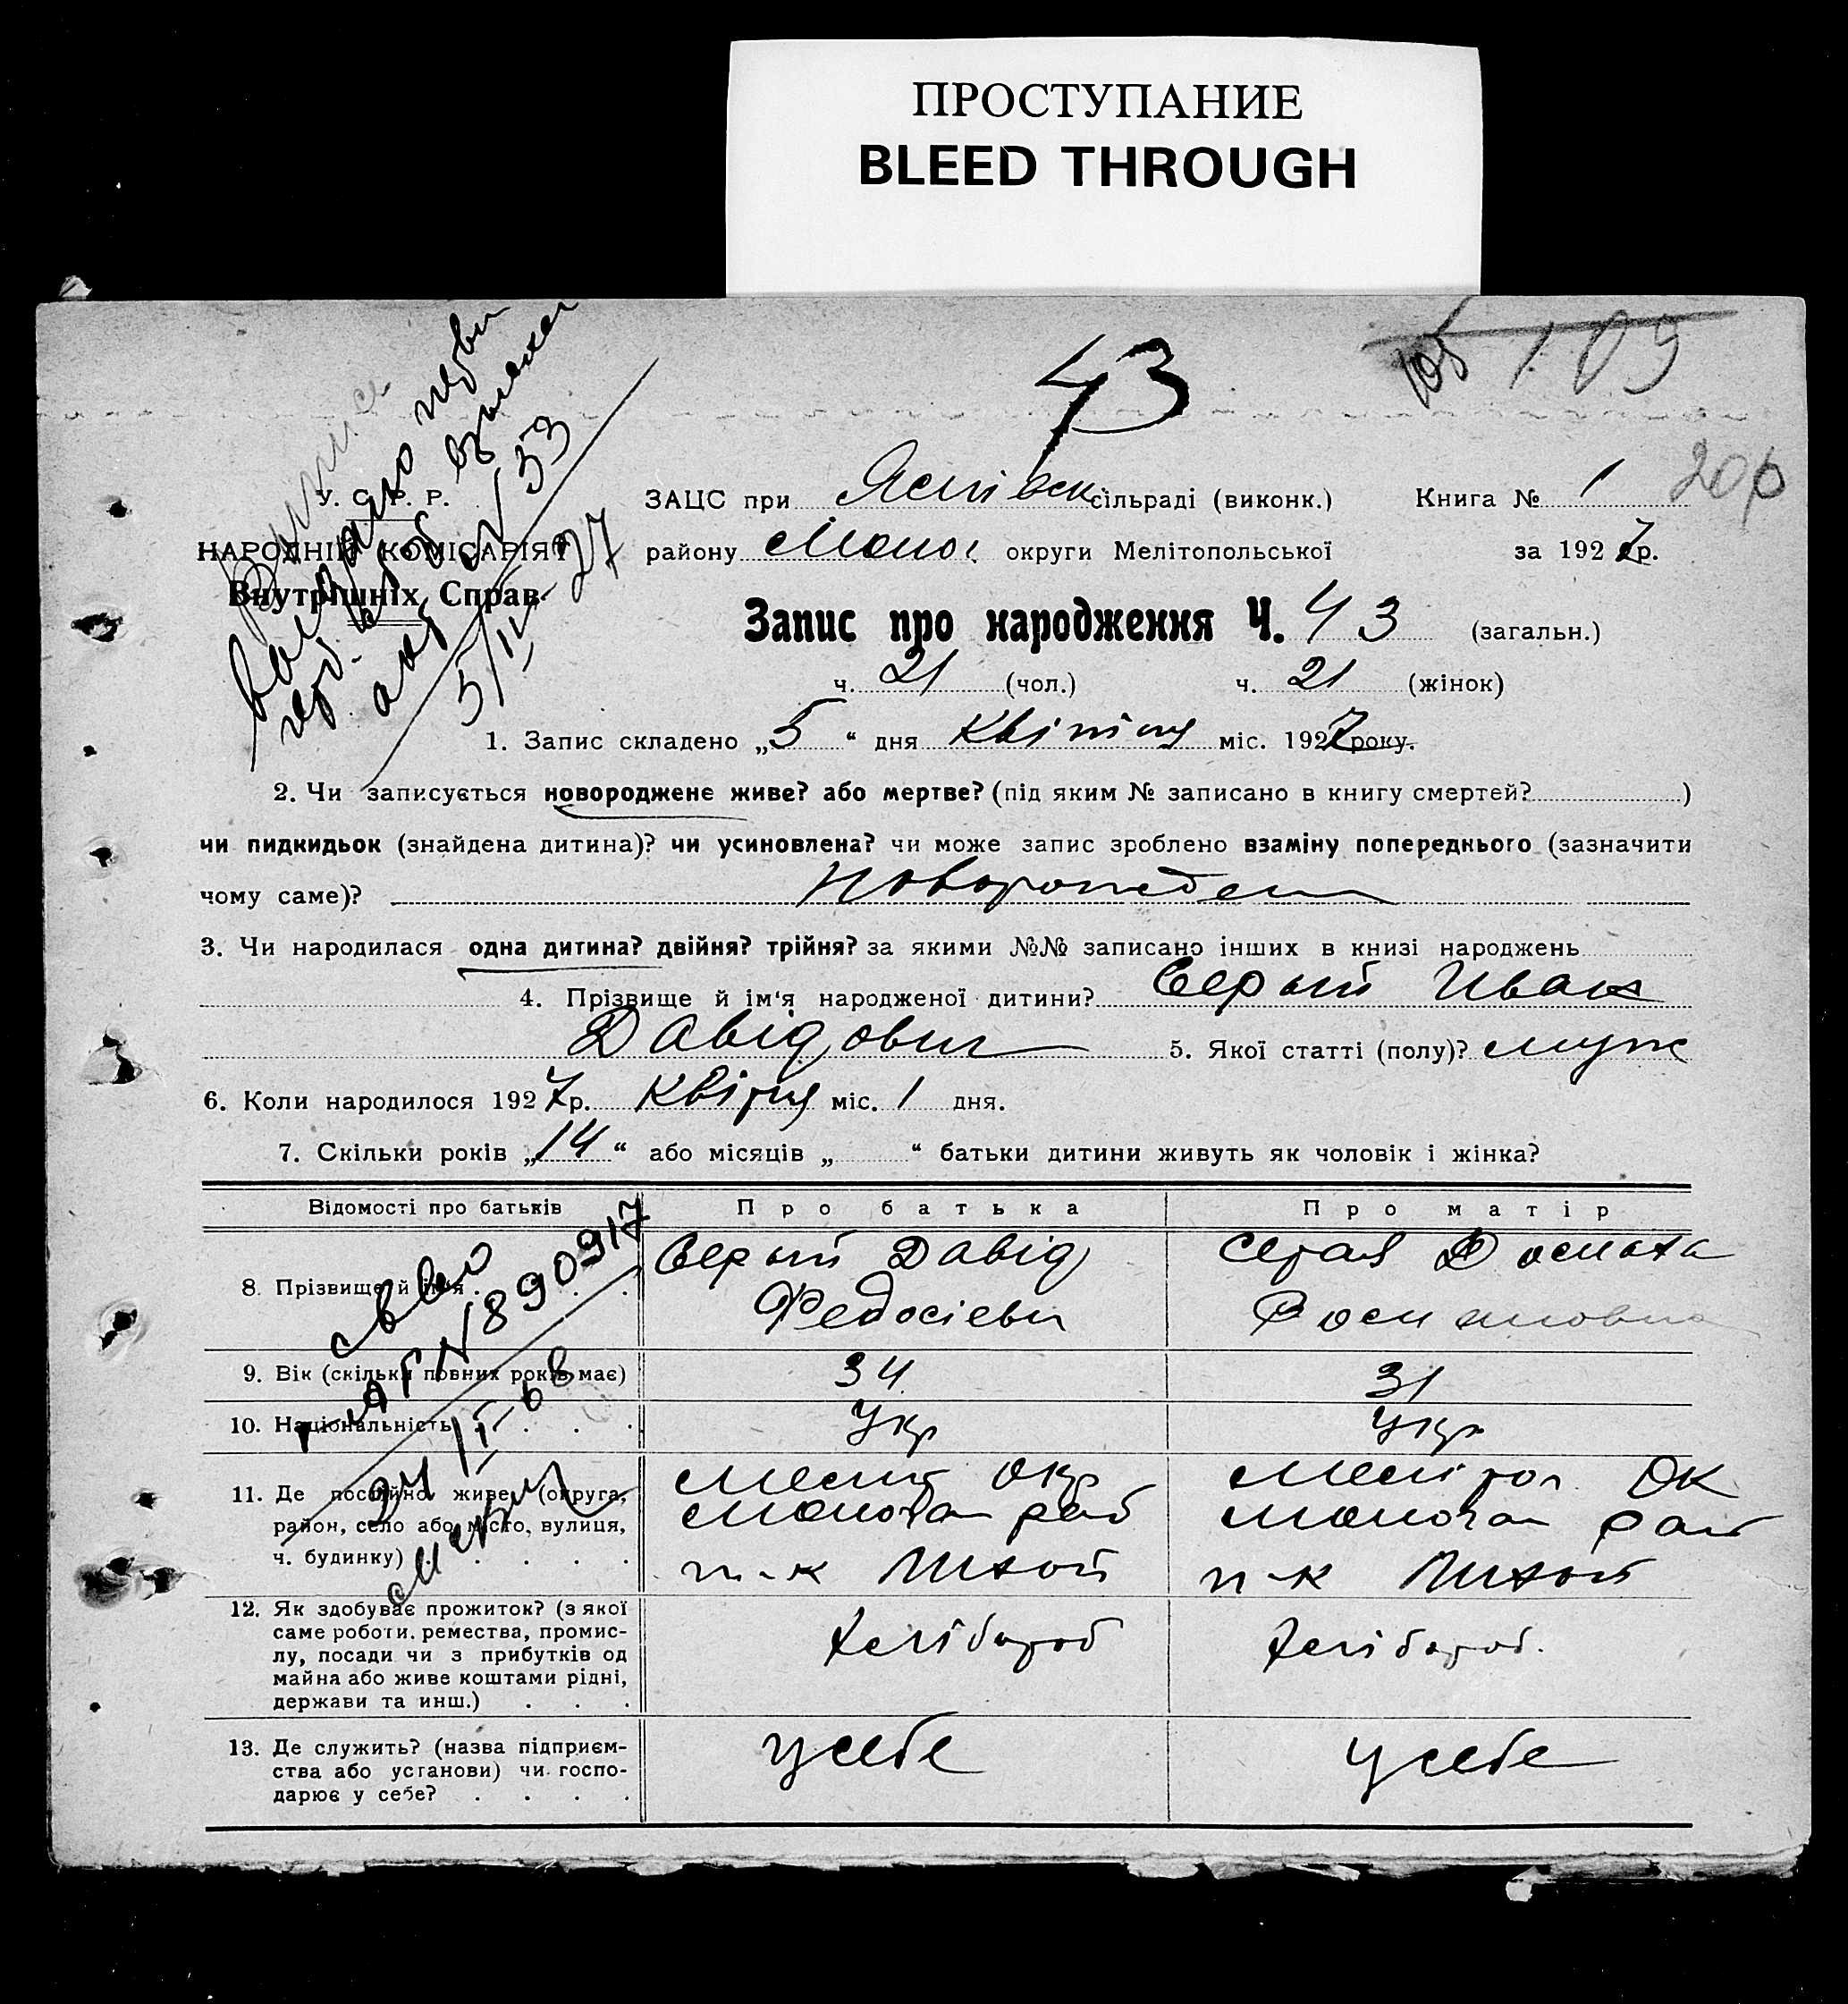 ПРОСТУПАНИЕ
BLEED THROUGH
43
105 109
206
У. С. Р. Р.
НАРОДНІЙ КОМІСАРІЯТ
Внутрішніх Справ.
№ 53
5/IV-27
ЗАЦС при сільраді (виконк.) Книга № 1
району округи Мелітопольської за 1927р.
Запис про народження Ч. 43 (загальн.)
ч. 21 (чол.) ч. 21 (жінок)
1. Запис складено „5“ дня Квітня міс. 1927 року.
2. Чи записується новороджене живе? або мертве? (під яким № записано в книгу смертей? )
чи пидкидьок (знайдена дитина)? чи усиновлена? чи може запис зроблено взаміну попереднього (зазначити
чому саме)? Новорожден
3. Чи народилася одна дитина? двійня? трійня? за якими №№ записано інших в книзі народжень
4. Прізвище й ім'я народженої дитини? Серый Иван
Давідович 5. Якої статті (полу)? муж
6. Коли народилося 1927р. Квітня міс. 1 дня.
7. Скільки років „14“ або місяців „ “ батьки дитини живуть як чоловік і жінка?
Відомості про батьків Про батька Про матір
8. Прізвище й ім'я Серый Давід Серая
Федосієвич
№ 890917
9. Вік (скільки повних років має) 34 31
10. Національність Укр Укр
24/II-68
11. Де постійно живе (округа, Меліт Окр Мелітоп. Ок
район, село або місто, вулиця,
ч. будинку) Тихой Тихой
12. Як здобуває прожиток? (з якої
саме роботи, ремества, промис-
лу, посади чи з прибутків од хлібороб хлібороб.
майна або живе коштами рідні,
держави та инш.)
13. Де служить? (назва підприєм- у себе у себе
ства або установи) чи госпо-
дарює у себе?